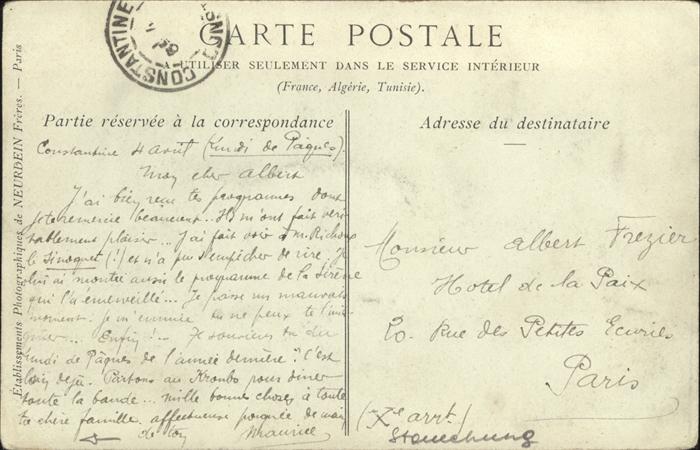 CARTE POSTALE
A UTILISER SEULEMENT DANS LE SERVICE INTÉRIEUR
(France, Algérie, Tunisie).
Partie réservée à la correspondance
Adresse du destinataire
CONSTANTINE
CONSTANTINE
Établissements Photographiques de NEURDEIN Frères. — Paris
Constantine 4 Avril (Lundi de Pâques).
Mon cher Albert
J'ai bien reçu tes programmes dont
je te remercie beaucoup.. Ils m'ont fait véri
tablement plaisir... J'ai fait voir à M. Richoux
le (!) et n'a pu s'empêcher de rire, je
lui ai montré aussi le programme de la Sirène
qui l'a émerveillé... Je passe un mauvais
moment. Je m'ennuie tu ne peux te l'ima
giner... Enfin!... Te souviens tu du
lundi de Pâques de l'année dernière? C'est
loin déjà. Partons au pour dîner
toute la bande... mille bonnes choses à toute
ta chère famille. affectueuse poignée de main
de ton Maurice
Monsieur Albert Frezier
Hotel de la Paix
20. Rue des Petites Ecuries
Paris
(Xe arrt)